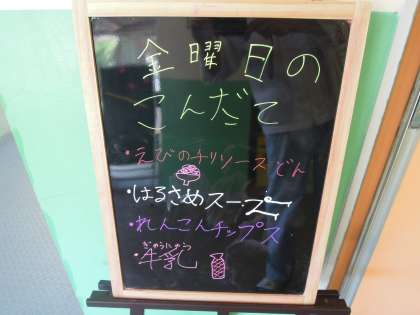 金曜日の
こんだて
・えびのチリソースどん
・はるさめスープ
・れんこんチップス
ぎゅうにゅう
・牛乳